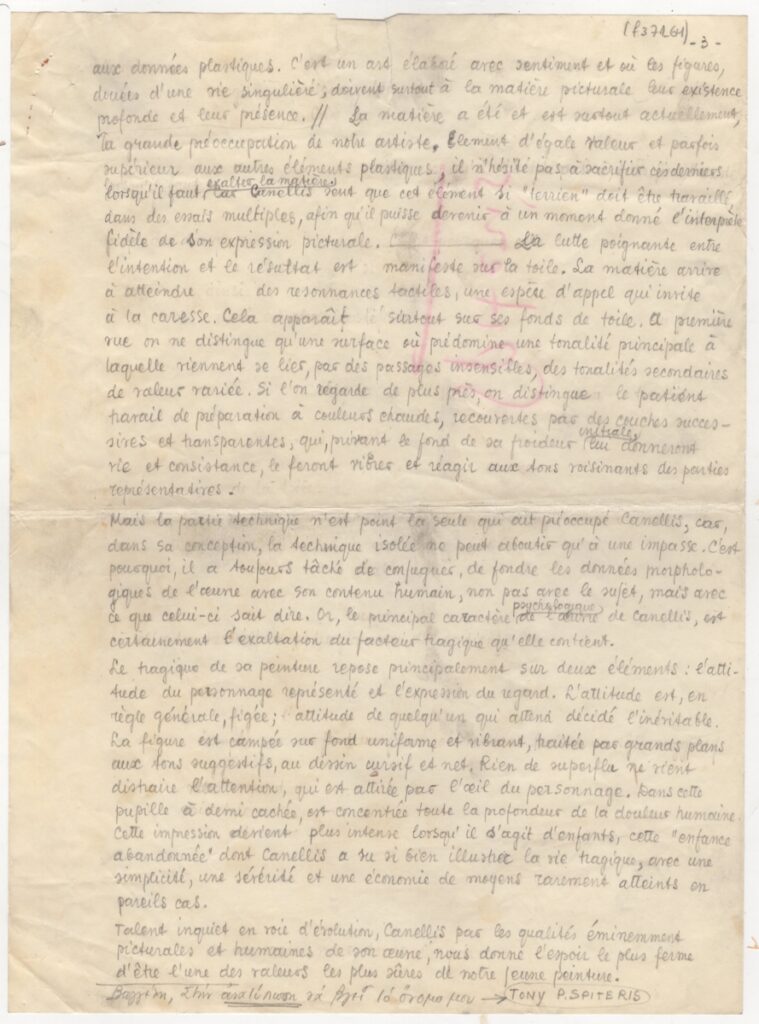 (f37261) -3-
aux données plastiques. C'est un art élaboré avec sentiment et où les figures,
douées d'une vie singulière, doivent surtout à la matière picturale leur existence
profonde et leur présence. // La matière a été et est surtout actuellement,
la grande préoccupation de notre artiste. Element d'égale valeur et parfois
supérieur aux autres éléments plastiques, il n'hésite pas à sacrifier ces derniers
lorsqu'il faut exalter la matière, car Canellis sent que cet élément si "terrien" doit être travaillé
dans des essais multiples, afin qu'il puisse devenir à un moment donné l'interprète
fidèle de son expression picturale. La lutte poignante entre
l'intention et le résultat est manifeste sur la toile. La matière arrive
à atteindre des resonnances tactiles, une espèce d'appel qui invite
à la caresse. Cela apparaît surtout sur ses fonds de toile. A première
vue on ne distingue qu'une surface où prédomine une tonalité principale à
laquelle viennent se lier, par des passages insensibles, des tonalités secondaires
de valeur variée. Si l'on regarde de plus près, on distingue le patient
travail de préparation à couleurs chaudes, recouvertes par des couches succes-
sives et transparentes, qui, privant le fond de sa froideur initiale, lui donneront
vie et consistance, le feront vibrer et réagir aux tons voisinants des parties
représentatives.
Mais la partie technique n'est point la seule qui ait préoccupé Canellis, car,
dans sa conception, la technique isolée ne peut aboutir qu'à une impasse. C'est
pourquoi, il a toujours tâché de conjuguer, de fondre les données morpholo-
giques de l'œuvre avec son contenu humain, non pas avec le sujet, mais avec
ce que celui-ci sait dire. Or, le principal caractère psychologique de l'œuvre de Canellis, est
certainement l'exaltation du facteur tragique qu'elle contient.
Le tragique de sa peinture repose principalement sur deux éléments : l'atti-
tude du personnage représenté et l'expression du regard. L'attitude est, en
règle générale, figée ; attitude de quelqu'un qui attend décidé l'inévitable.
La figure est campée sur fond uniforme et vibrant, traitée par grands plans
aux tons suggestifs, au dessin cursif et net. Rien de superflu ne vient
distraire l'attention, qui est attirée par l'œil du personnage. Dans cette
pupille à demi cachée, est concentrée toute la profondeur de la douleur humaine.
Cette impression devient plus intense lorsqu'il s'agit d'enfants, cette "enfance
abandonnée" dont Canellis a su si bien illustrer la vie tragique, avec une
simplicité, une sérénité et une économie de moyens rarement atteints en
pareils cas.
Talent inquiet en voie d'évolution, Canellis par les qualités éminemment
picturales et humaines de son œuvre, nous donne l'espoir le plus ferme
d'être l'une des valeurs les plus sûres de notre jeune peinture.
στήν ἀνατύπωση νά βγεῖ τό ὄνομα μου → TONY P. SPITERIS